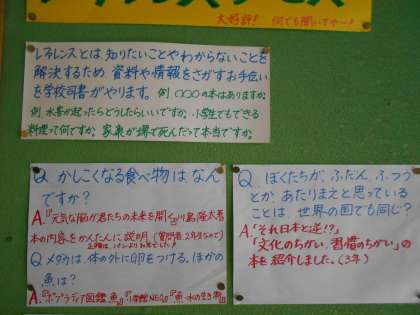 大好評! 何でも聞いてや〜!
レファレンスとは、知りたいことやわからないことを
解決するため、資料や情報をさがすお手伝い
を学校司書がやります。例 〇〇〇の本はありますか。
例 水害が起ったらどうしたらいいですか。小学生でもできる
料理って何ですか。家康が堺で死んだって本当ですか。
Q かしこくなる食べ物はなん
ですか?
A.『元気な脳が君たちの未来を開く』川島隆太著
本の内容をかんたんに説明
Q メダカは、体の外に卵をつける。ほかの
魚は?
A.『ポプラディア図鑑 魚』『小学館NEO』『魚・水の生き物』
Q ぼくたちが、ふだん、ふつう
とか、あたりまえと思っている
ことは、世界の国でも同じ?
A.「それ日本と逆!?」
「文化のちがい 習慣のちがい」の
本を紹介しました。(3年)